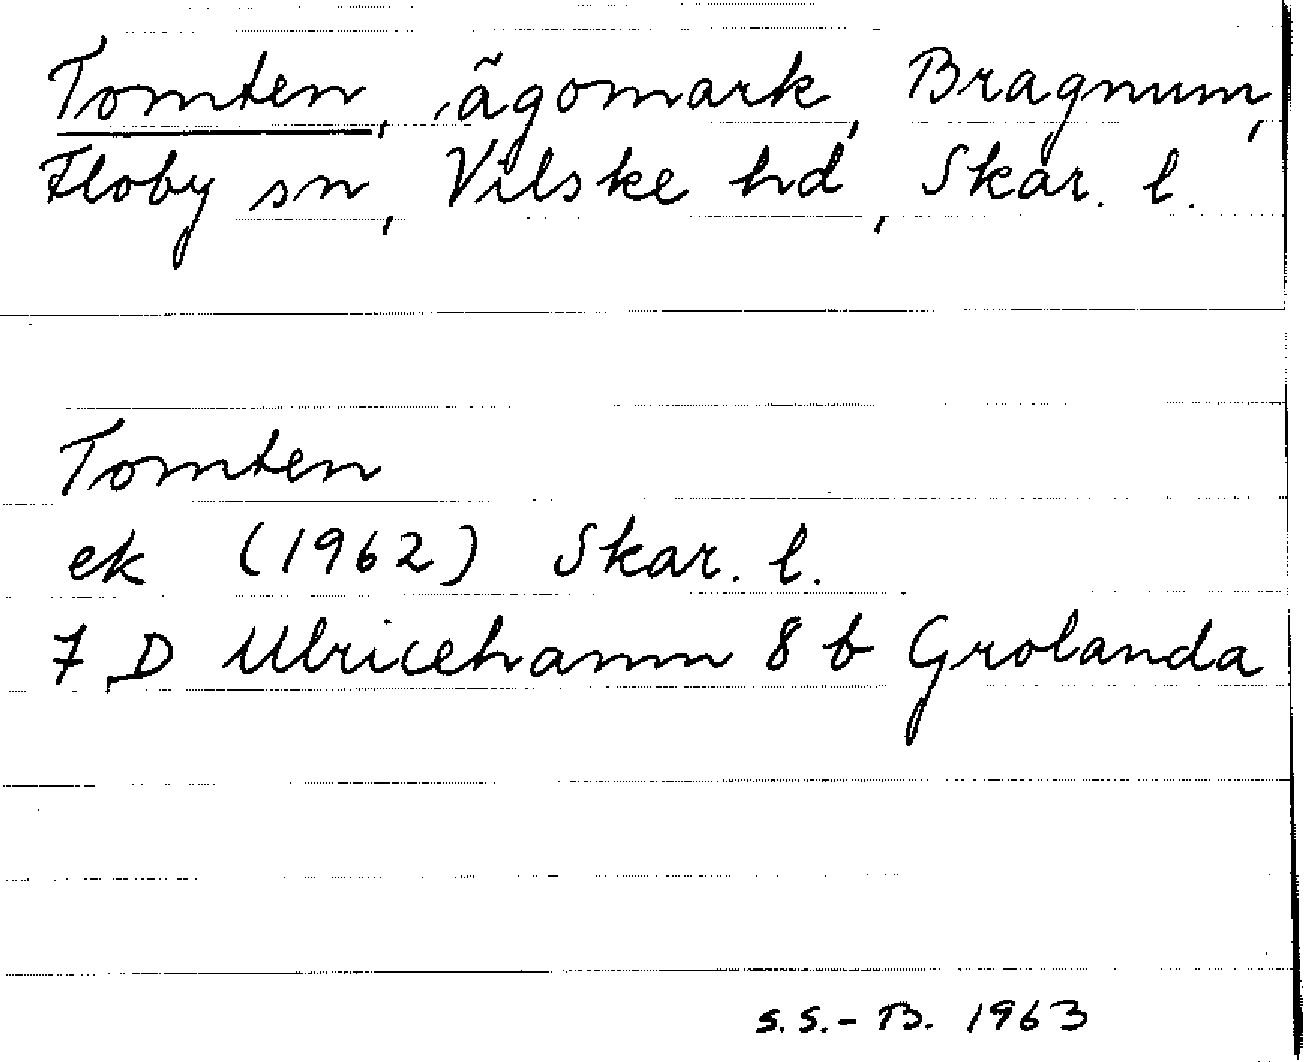 Tomten, ägomark, Bragnum,
Floby sn, Vilske hd, Skar. l.
Tomten
ek (1962) Skar. l.
7 D Ulricehamn 8 b Grolanda
S.S.-B. 1963